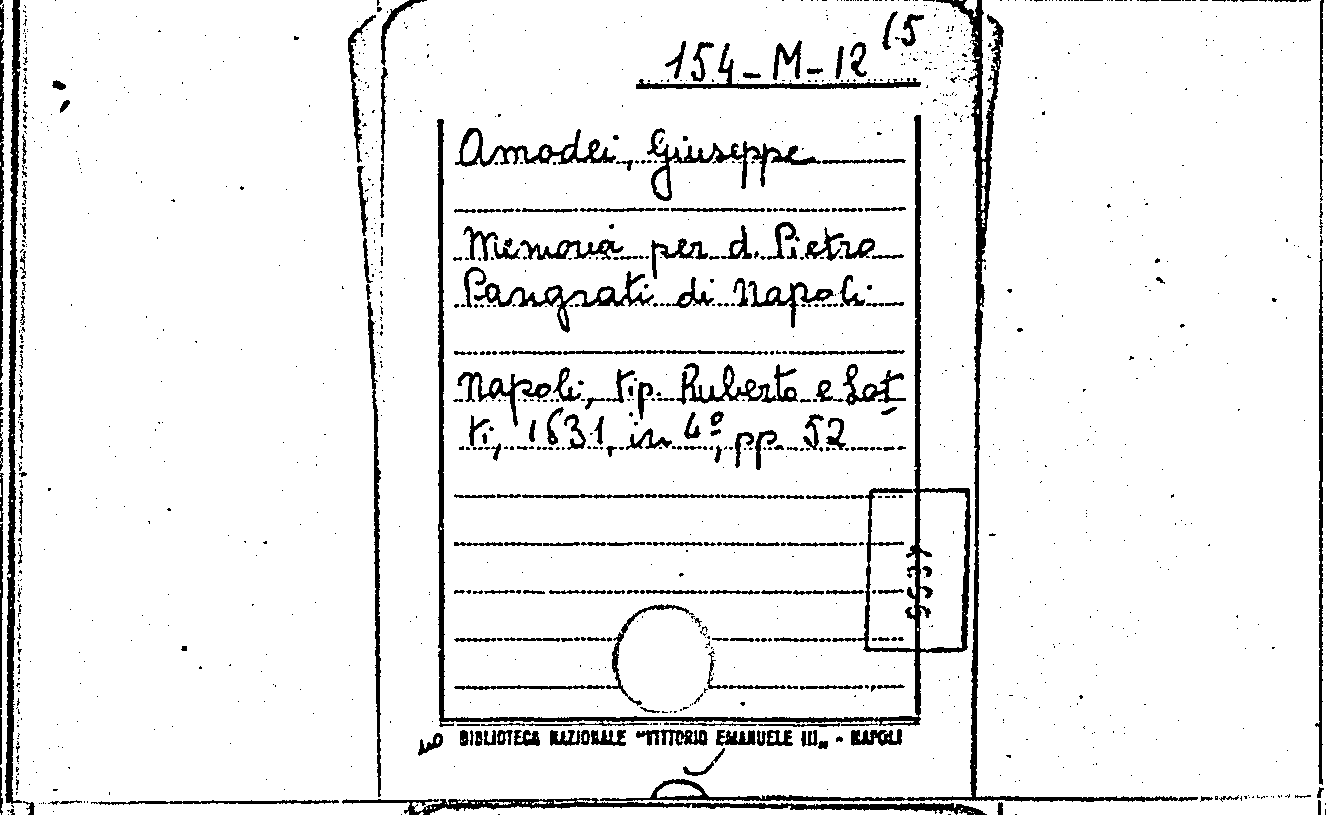 154-M-12 (5
Amodei, Giuseppe
Memoria per d. Pietro
Pangrati di Napoli
Napoli, tip. Ruberto e Lot
ti, 1631, in 4º, pp. 52
BIBLIOTECA NAZIONALE "VITTORIO EMANUELE III„ - NAPOLI